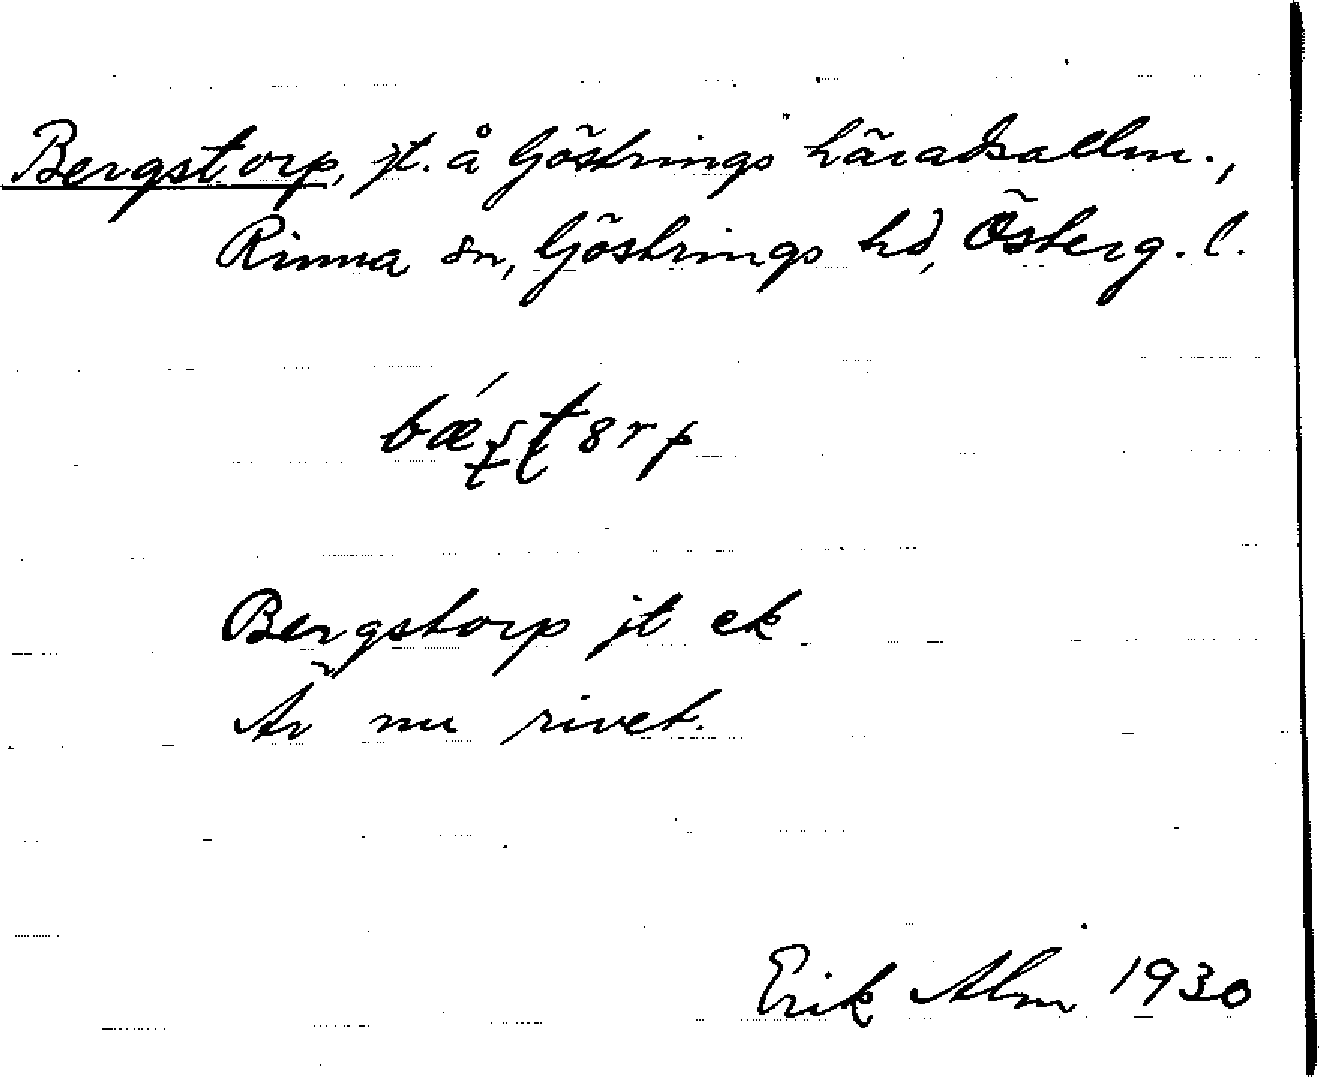 Bergstorp, jt. å Göstrings häradsallm.,
Rinna sn, Göstrings hd, Österg. l.
Bergstorp jt ek
Är nu rivet.
Erik Alm 1930